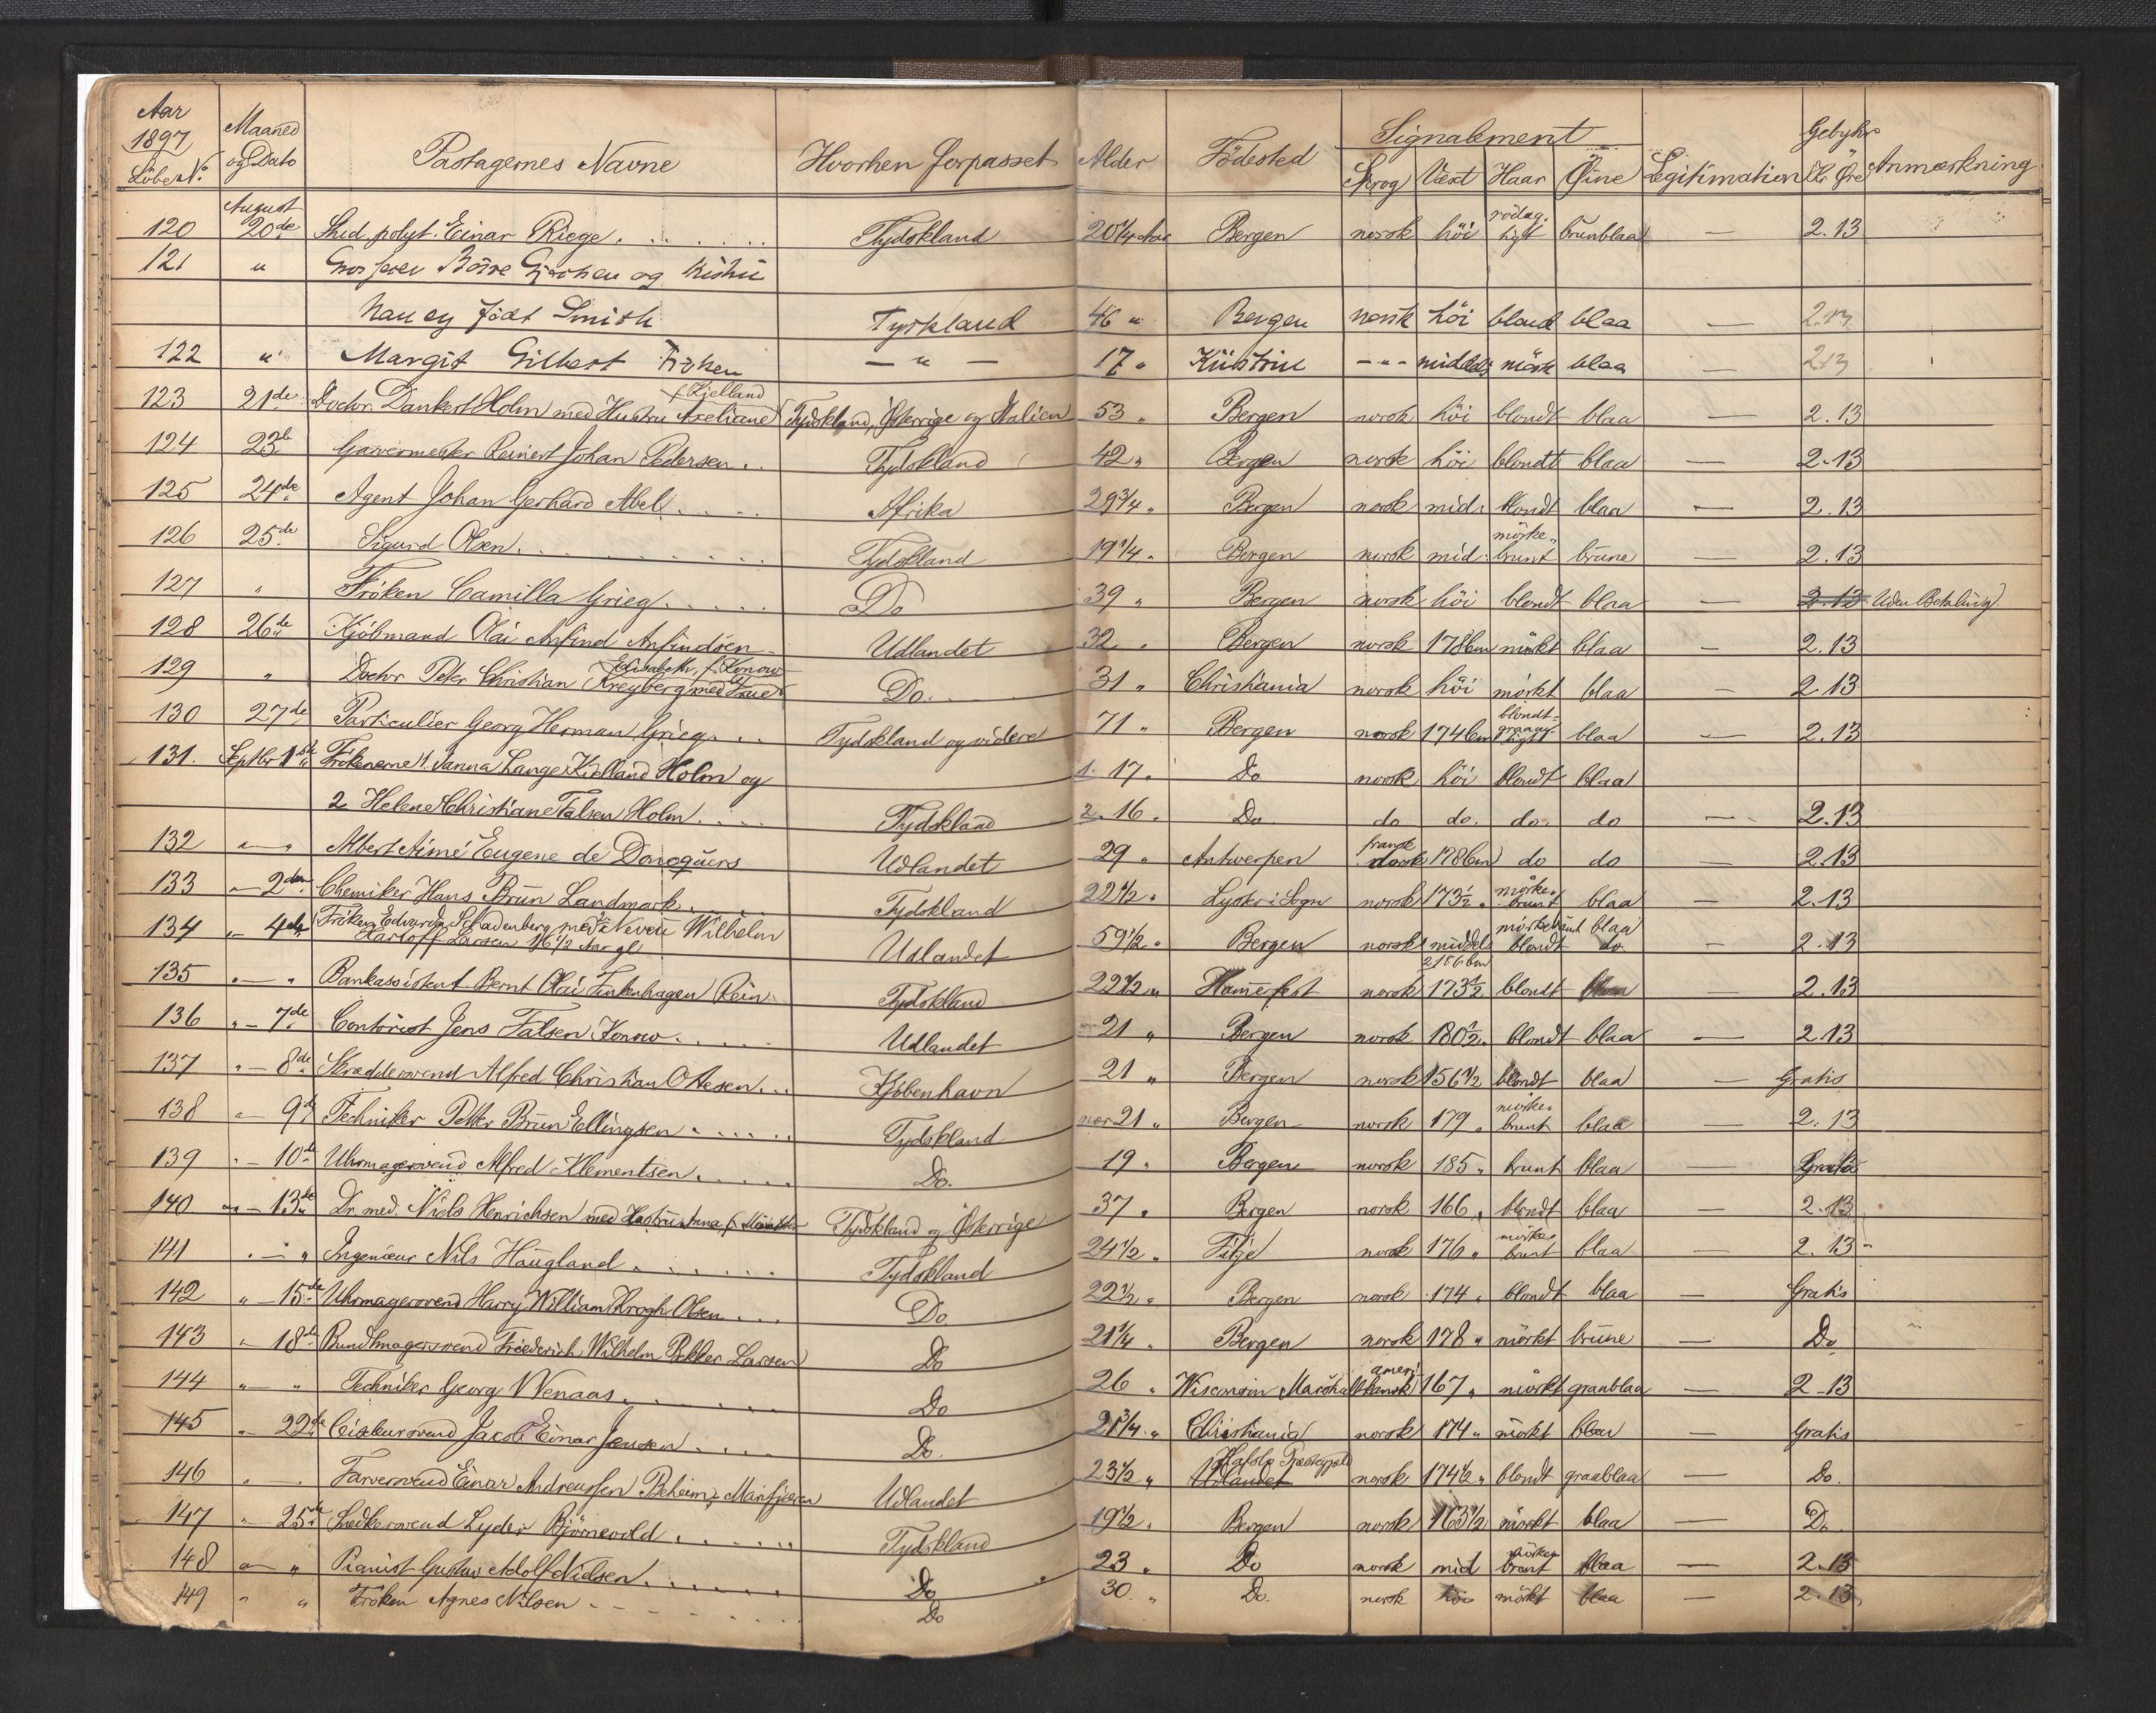 Aar 1897 Løbe No. Maaned og Dato Passagernes Navne Hvorhen forpasset Alder Födested Signalement Sprog Vext Haar Øine Legitimation Gebyhr Kr Øre Anmærkning
August
120 20de Stud. polyt. Einar Riege Tydskland 20 1/4 Aar Bergen norsk höi rödag. ligt brunblaa — 2.13
121 " Grosserer Börre og Hustru
Nancy födt Smith Tyskland 46 " Bergen norsk höi blond blaa — 2.13
122 " Margit Gilbert Fröken — " — 17 " Küstrin - " - middels mörk blaa — 2.13
123 21de Doctor Dankert Holm med Hustru Axeliane f. Kielland Tydskland, Østerrige og Italien 53 " Bergen norsk höi blondt blaa — 2.13
124 23de Garvermester Reinert Johan Pedersen Tydskland 42 " Bergen norsk höi blondt blaa — 2.13
125 24de Agent Johan Gerhard Abel Afrika 29 3/4 " Bergen norsk mid. blondt blaa — 2.13
126 25de Sigurd Olsen Tydskland 19 1/4 " Bergen norsk mid. mörkebrunt brune — 2.13
127 " Fröken Camilla Grieg Do 39 " Bergen norsk höi blondt blaa — 2.13 Uden Betaling
128 26de Kjöbmand Olai Anfind Anfindsen Udlandet 32 " Bergen norsk 178 Cm mörkt blaa — 2.13
129 " Doctor Peter Christian Kreyberg med Frue Elisabeth, f. Konow Do. 31 " Christiania norsk höi mörkt blaa — 2.13
130 27de Particulier Georg Herman Grieg Tydskland og videre 71 " Bergen norsk 174 Cm blondt- ligt blaa — 2.13
131. Septbr 1ste Frökenerne 1. Janna Lange Kielland Holm og 1. 17 " Do norsk höi blondt blaa
2 Helene Christiane Falsen Holm Tydskland 2. 16 " Do do do. do. do — 2.13
132 " — " Albert Aimé Eugene de Udlandet 29 " Antwerpen fransk norsk 178 Cm do do — 2.13
133 " — 2den Chemiker Hans Brun Landmark Tydskland 22 1/2 " Lyster i Sogn norsk 173 1/2 " mörkebrunt blaa — 2.13
134 " — 4de Fröken Edvarda Schadenberg med Neveu Wilhelm
Harloff Larsen 16 1/2 Aar gl. Udlandet 59 1/2 " Bergen norsk middels mörkebrunt blaa blondt do — 2.13
135 " — " Bankassistent Bernt Olai Finkenhagen Rein Tydskland 22 1/2 " Hamerfest norsk 173 1/2 blondt blaa — 2.13
136 " — 7de Contorist Jens Falsen Konow Udlandet 21 " Bergen norsk 180 1/2 " blondt blaa — 2.13
137 " — 8de Skræddersvend Alfred Christian Ottesen Kjöbenhavn 21 " Bergen norsk 156 1/2 blondt blaa — Gratis
138 " — 9de Techniker Petter Brun Ellingsen Tydskland nær 21 " Bergen norsk 179 " mörkebrunt blaa — 2.13
139 " — 10de Uhrmagersvend Alfred Klementsen Do. 19 " Bergen norsk 185 " brunt blaa — Gratis
140 " — 13de Dr. med. Niels Henrichsen med Hustru Anna f. Tydskland og Østerrige 37 " Bergen norsk 166 " blondt blaa — 2.13
141 " — " Ingeniör Nils Haugland Tydskland 24 1/2 " Fitje norsk 176 " mörkebrunt blaa — 2.13
142 " — 15de Uhrmagersvend Harry William Krogh Olsen Do. 22 1/2 " Bergen norsk 174 " blondt blaa — Gratis
143 " — 18de Bundtmagersvend Friederich Wilhelm Bekker Larsen Do 21 1/4 " Bergen norsk 178 " mörkt brune — Do
144 " — " Techniker Georg Wenaas Do 26 " Wisconsin Marshall amerikansk 167 " mörkt graablaa — 2.13
145 " — 22de Ciseleursvend Jacob Einar Jensen Do. 21 3/4 " Christiania norsk 174 " mörkt blaa — Gratis
146 " — " Farversvend Einar Andreassen Beheim, Marifjæren Udlandet 23 1/2 " Udlandet Hafslo Præstegjeld norsk 174 1/2 " blondt graablaa — Do.
147 " — 25de Snedkersvend Lyder Björnevold Tydskland 19 1/2 " Bergen norsk 163 1/2 mörkt blaa — Do.
148 " — " Pianist Gustav Adolf Nielsen Do 23 " Do norsk mid mörkebrunt blaa — 2.13
149 " " Fröken Agnes Nilsen Do 30 " Do. norsk höi mörkt blaa — 2.13